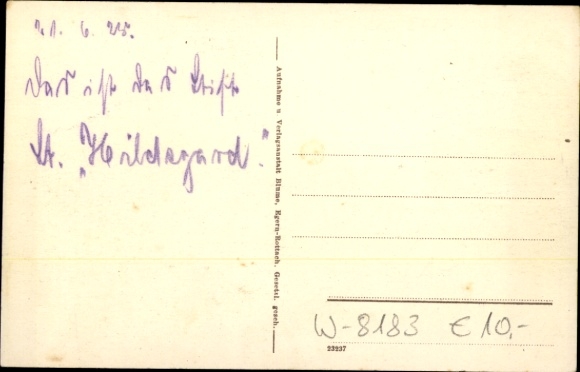 21. 6. 25.
Das ist das Stift
St. „Hildegard."
Aufnahme u. Verlagsanstalt Blume, Egern-Rottach. Gesetzl. gesch.
W-8183 € 10,-
23237